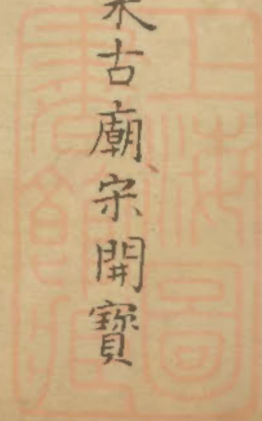 古廟宋開寶
上海圖
書館藏